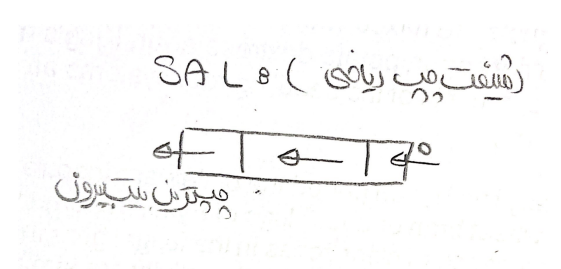 SAL : (شیفت چپ ریاضی)
0
چپ‌ترین بیت بیرون